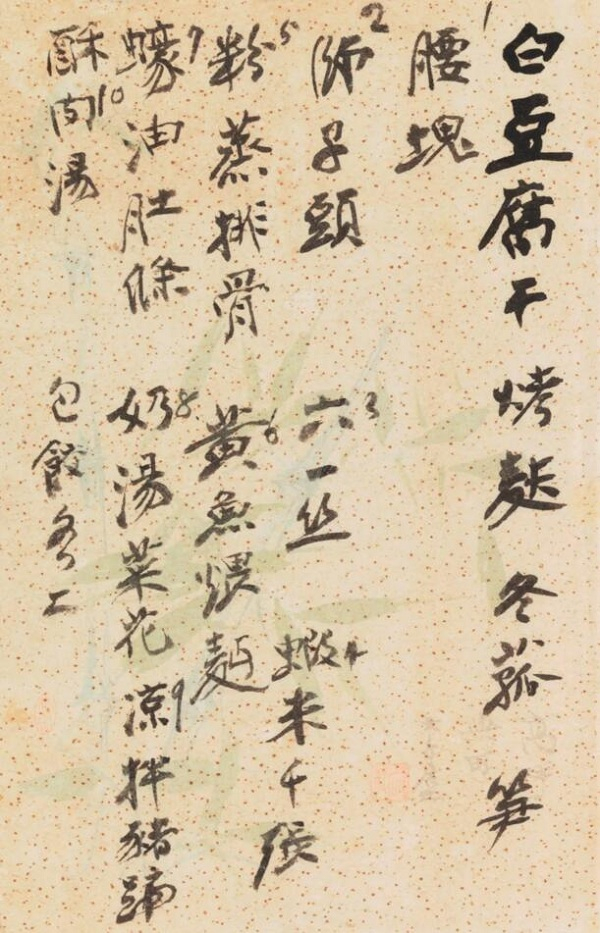 白豆腐干 烤麩 冬菰 笋
腰塊1
師子頭2 六一丝3 蝦米千張4
粉蒸排骨5 黃魚煨麵6
蠔油肚條7 奶湯菜花8 凉拌豬蹄9
酥肉湯10 包餃各